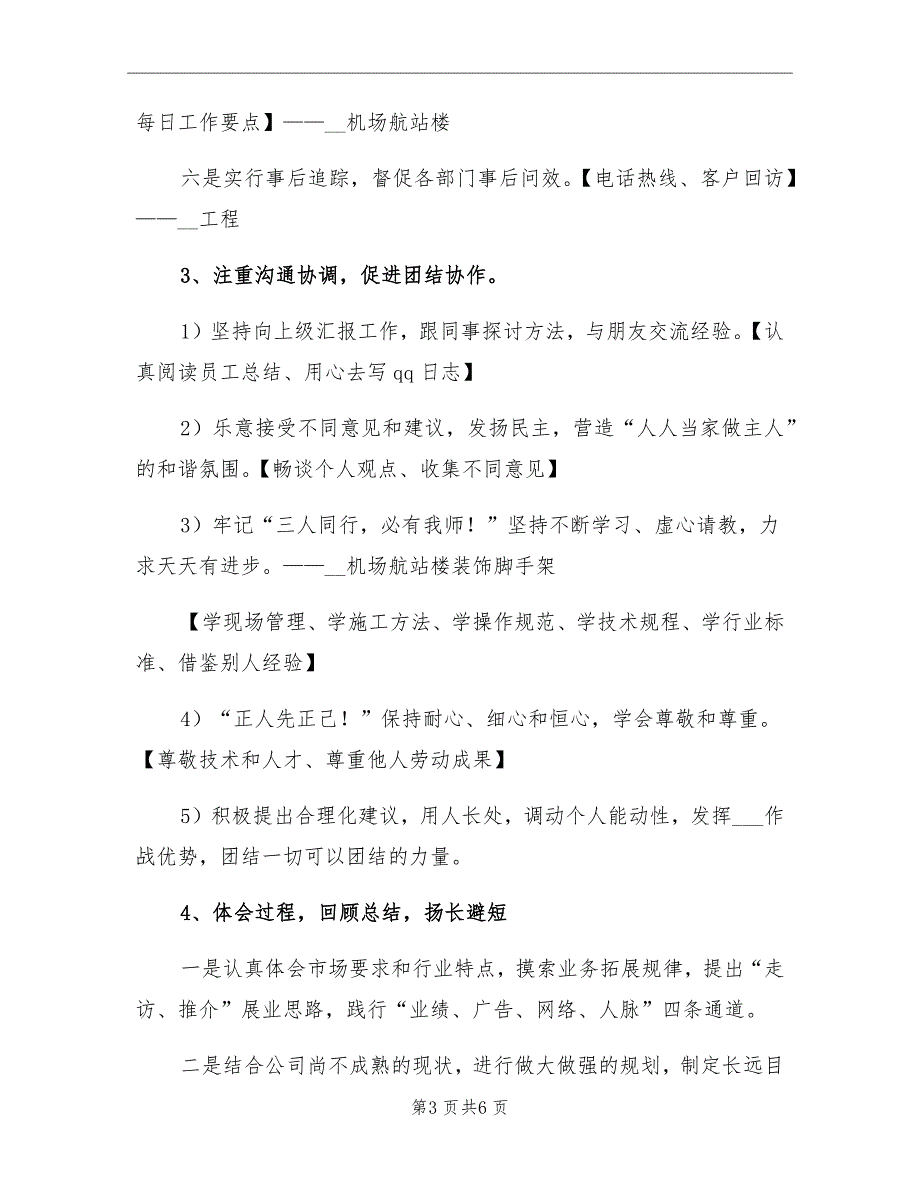 每日工作要点】——__机场航站楼
六是实行事后追踪，督促各部门事后问效。【电话热线、客户回访】
——__工程
3、注重沟通协调，促进团结协作。
1）坚持向上级汇报工作，跟同事探讨方法，与朋友交流经验。【认
真阅读员工总结、用心去写 qq 日志】
2）乐意接受不同意见和建议，发扬民主，营造“人人当家做主人”
的和谐氛围。【畅谈个人观点、收集不同意见】
3）牢记“三人同行，必有我师！”坚持不断学习、虚心请教，力
求天天有进步。——__机场航站楼装饰脚手架
【学现场管理、学施工方法、学操作规范、学技术规程、学行业标
准、借鉴别人经验】
4）“正人先正己！”保持耐心、细心和恒心，学会尊敬和尊重。
【尊敬技术和人才、尊重他人劳动成果】
5）积极提出合理化建议，用人长处，调动个人能动性，发挥___作
战优势，团结一切可以团结的力量。
4、体会过程，回顾总结，扬长避短
一是认真体会市场要求和行业特点，摸索业务拓展规律，提出“走
访、推介”展业思路，践行“业绩、广告、网络、人脉”四条通道。
二是结合公司尚不成熟的现状，进行做大做强的规划，制定长远目
第3 页共6 页